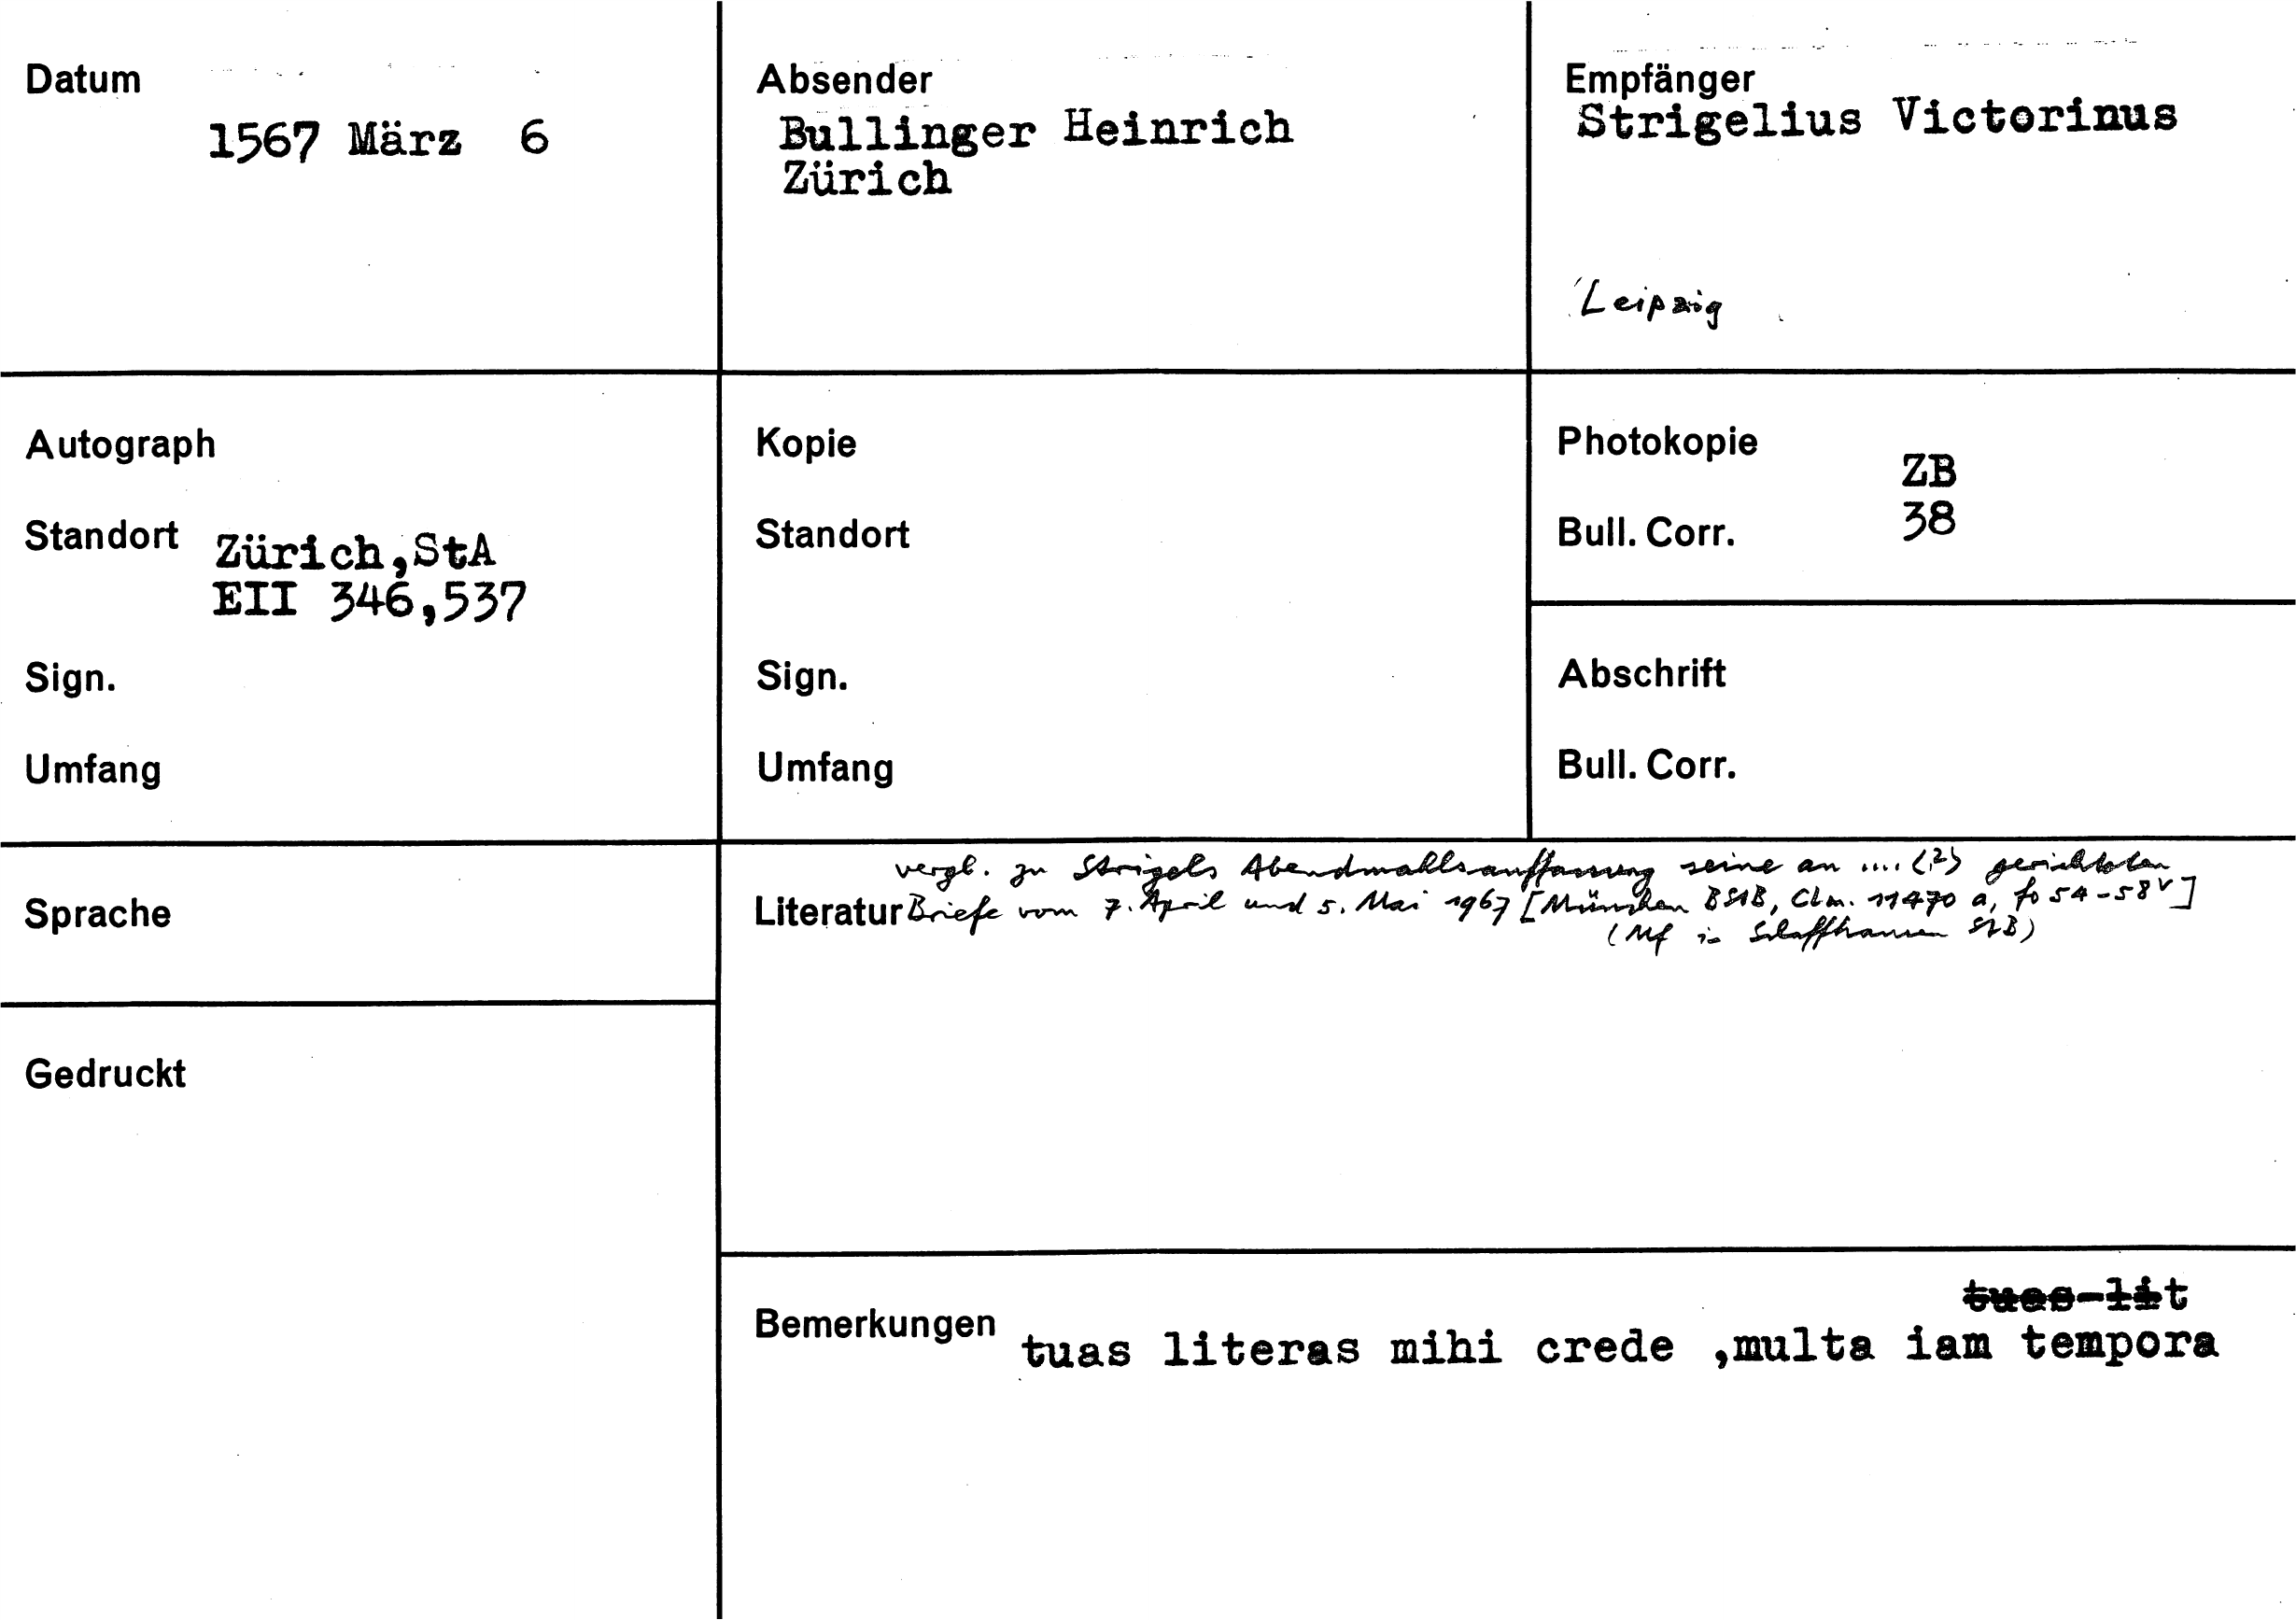 Datum
1567 März 6
Absender
Bullinger Heinrich
Zürich
Empfänger
Strigelius Victorinus
Leipzig
Autograph
Standort Zürich,StA
EII 346,537
Sign.
Umfang
Kopie
Standort
Sign.
Umfang
Photokopie ZB
Bull. Corr. 38
Abschrift
Bull. Corr.
Sprache
Gedruckt
vergl. zu Strigels Abendmahlsauffassung seine an .... (?) gerichteten
Literatur Briefe vom 7. April und 5. Mai 1967 [München BStB, Clm. 11470 a, fo 54-58v]
(Mf in Schaffhausen StB)
tuas-lit
Bemerkungen tuas literas mihi crede ,multa iam tempora